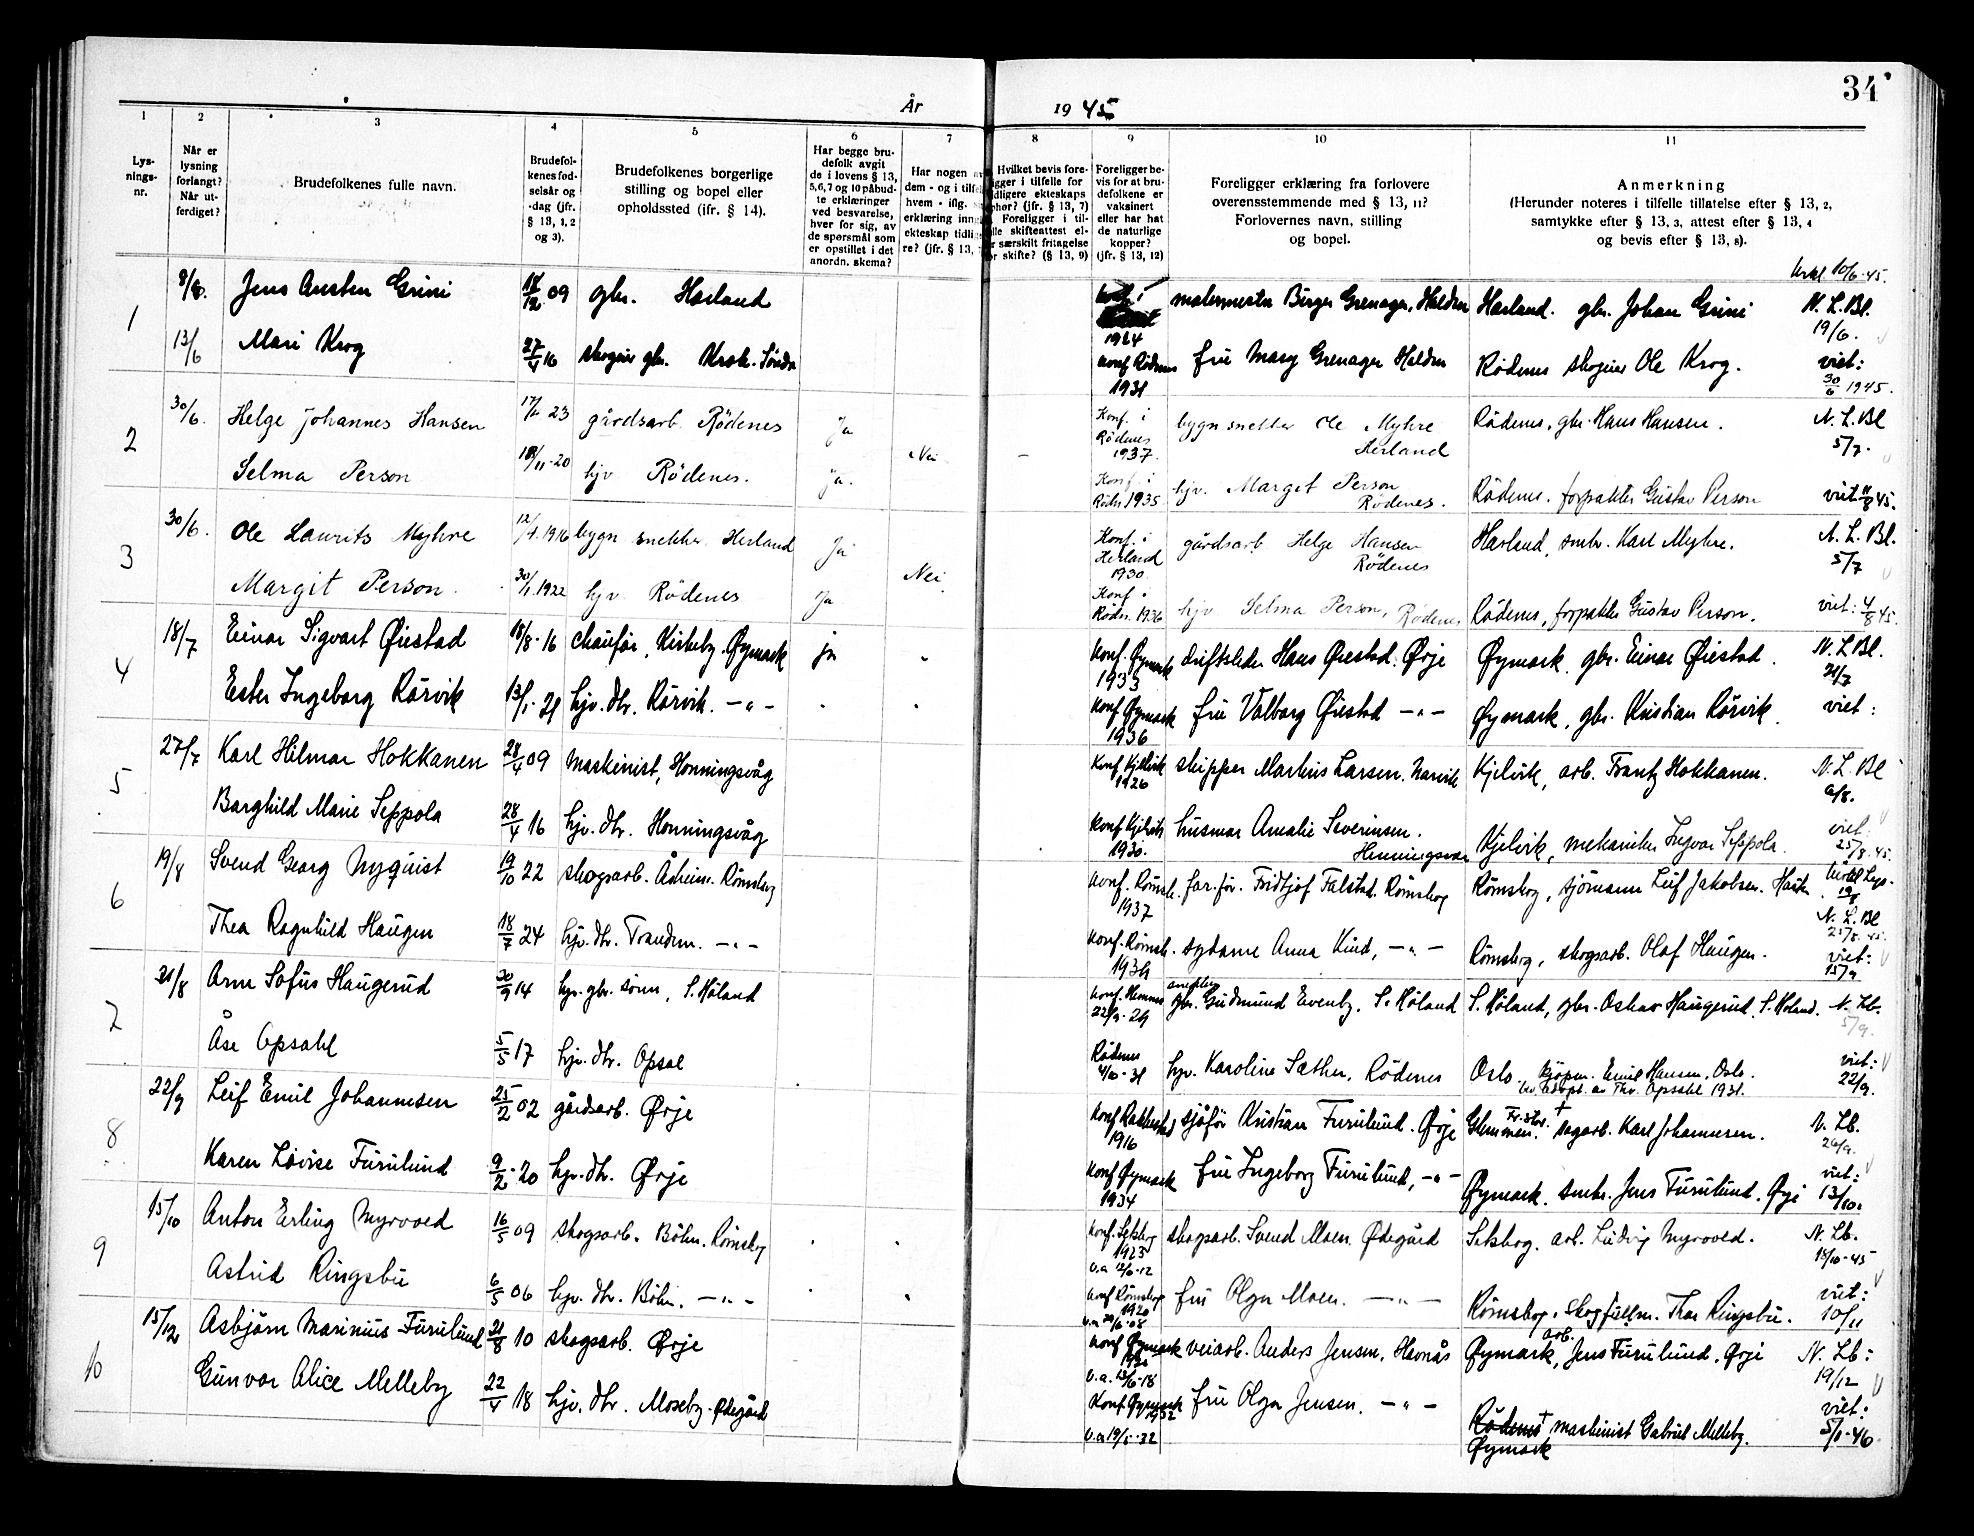 34
År 1945
1
2
3
4
5
6
7
8
9
10
11
Lys-
nings-
nr.
Når er
lysning
forlangt?
Når ut-
ferdiget?
Brudefolkenes fulle navn.
Brudefol-
kenes fød-
selsår og
-dag (jfr.
§ 13, 1, 2
og 3).
Brudefolkenes borgerlige
stilling og bopel eller
opholdssted (ifr. § 14).
Har begge bru-
defolk avgit
de i lovens § 13,
5,6,7 og 10 påbud-
te erklæringer
ved besvarelse,
hver for sig, av
de spørsmål som
er opstillet i det
anordn. skema?
Har nogen av
dem - og i tilfe
hvem - iflg.
erklæring inng
ekteskap tidlig
re? (jfr. § 13,
Hvilket bevis fore-
ligger i tilfelle for
tidligere ekteskaps
ophør? (jfr. § 13, 7)
Foreligger i til-
felle skifteattest el-
r særskilt fritagelse
or skifte? (§ 13, 9)
Foreligger be-
vis for at bru-
defolkene er
vaksinert
eller har hat
de naturlige
kopper?
(jfr. § 13, 12)
Foreligger erklæring fra forlovere
overensstemmende med § 13, 11?
Forlovernes navn, stilling
og bopel.
Anmerkning
(Herunder noteres i tilfelle tillatelse efter § 13, 2,
samtykke efter § 13, 3, attest efter § 13, 4
og bevis efter § 13, 8).
1
8/6. Jens Austen Grini 18/12 09 gbr. Harland 1924 malermester Birger Grenager, Halden Harland. gbr. Johan Grini N. L. Bl. 19/6.
13/6 Mari Krog 27/4 16 skogeier gbr. Krok. konf Rødenes 1931 fru Mary Grenager Halden Rødenes skogeier Ole Krog. viet: 30/6 1945.
2
30/6. Helge Johannes Hansen 23 gårdsarb. Rødenes Ja Konf. i Rødenes 1937. bygn snekker Ole Myhre Herland Rødenes, gbr. Hans Hansen. N. L. Bl 5/7.
Selma Person 18/11-20 hjv Rødenes. ja. Nei – Konf. i Rødn 1935 hjv. Margit Person Rødenes. Rødenes. forpakter Gustav Person viet 4/8 45.
3
30/6. Ole Laurits Myhre 1916 bygn snekker Herland Ja Konf. i Herland 1930. gårdsarb Helge Hansen Rødenes Harland, smbr. Karl Myhre. N. L. Bl. 5/7
Margit Person. 1922 hjv Rødenes Ja Nei Konf i Rødn. 1936 hjv Selma Person, Rødenes Rødenes, forpakter Gustav Person. viet: 4/8 45.
4
18/7 Einar Sigvart Øiestad 18/8-16 chaufør, Kirkeby. Øymark ja " konf. Øymark 1933 driftsleder Hans Øiestad. Ørje Øymark. gbr. Einar Øiestad. N. L Bl. 24/7
Ester Ingeborg Rørvik 13/1-21 hjv. dtr. Rørvik. —"— konf Øymark 1936 fru Valborg Øiestad —"— Øymark, gbr. Kristian Rørvik. viet:
5
27/7 Karl Hilmar Hokkanen 28/4 09 maskinist, Honningsvåg konf Kjelvik 1926 skipper Martius Larsen. Narvik Kjelvik, arb. Frantz Hokkanen. N. L. Bl
Borghild Marie Seppola 28/4 16 hjv. dtr. Honningsvåg konf Kjelvik 1930. husmor Amalie Severinsen. Henningsvær Kjelvik, mekaniker Ingvar Seppola. viet: 25/8-45.
6
19/8 Svend Georg Nyquist 19/10 22 skogsarb. Åsheim. Rømskog konf. Rømsk. 1937 for.før. Fridtjof Falstad. Rømskog Rømskog, sjömann Leif Jakobsen. N. L. Bl
Thea Ragnhild Haugen 18/7 24 hjv. dtr. Trandem. —"— konf. Rømsk. sydame Anna Kind, —"— Rømskog, skogsarb. Olaf Haugen. viet: 15/9
7
21/8 Arne Sofus Haugerud 30/9 14 gbr. sønn, S. Høland konf. Hemnes gbr. Gudmund Evenby, S. Høland S. Høland, gbr. Oskar Haugerud, S. Høland. N. Lb. 5/9.
Åse Opsahl 5/5 17 hjv. dtr. Opsal Rødenes 31 hjv. Karoline Sæther, Rødenes Oslo, kjøpm. Emil Hansen, Oslo. adopt. av Thv. Opsahl 1931. viet: 22/9.
8
22/9 Leif Emil Johannesen 25/2 02 gårdsarb. Ørje Konf Rakkestad 1916 sjåfør Kristian Furulund. Ørje Glemmen. sagarb. Karl Johannesen. N. Lb. 24/9.
Karen Lovise Furulund 9/2-20 hjv. dtr. Ørje konf Øymark 1934 fru Ingeborg Furulund, —"— Øymark. smbr. Jens Furulund. Ørje viet: 13/10.
9
15/10 Anton Erling Myrvold 16/5 09 skogsarb. Böhn. Rømskog konf. Setskog 1923 skogsarb. Svend Moen. Ødegård Setskog. arb. Ludvig Myrvold. N. Lb. 15/10-45
Astrid Ringsbu 6/5 06 hjv. dtr. Böhn. —"— konf Rømskog 1920 fru Olga Moen. —"— Rømskog. Skogfullm. Thor Ringsbu. viet: 10/11
10
15/12 Asbjørn Marinius Furulund 21/8 10 skogsarb. Ørje konf Øymark veiarb. Anders Jensen, Havnås Øymark, arb. Jens Furulund, Ørje N. Lb: 19/12
Gunvor Alice Melleby 22/4 18 hjv. dtr. Moseby. Ødegård Konf Øymark 1932 fru Olga Jensen. —"— Rødenes Øymark maskinist Gabriel Melleby. viet: 5/1-46